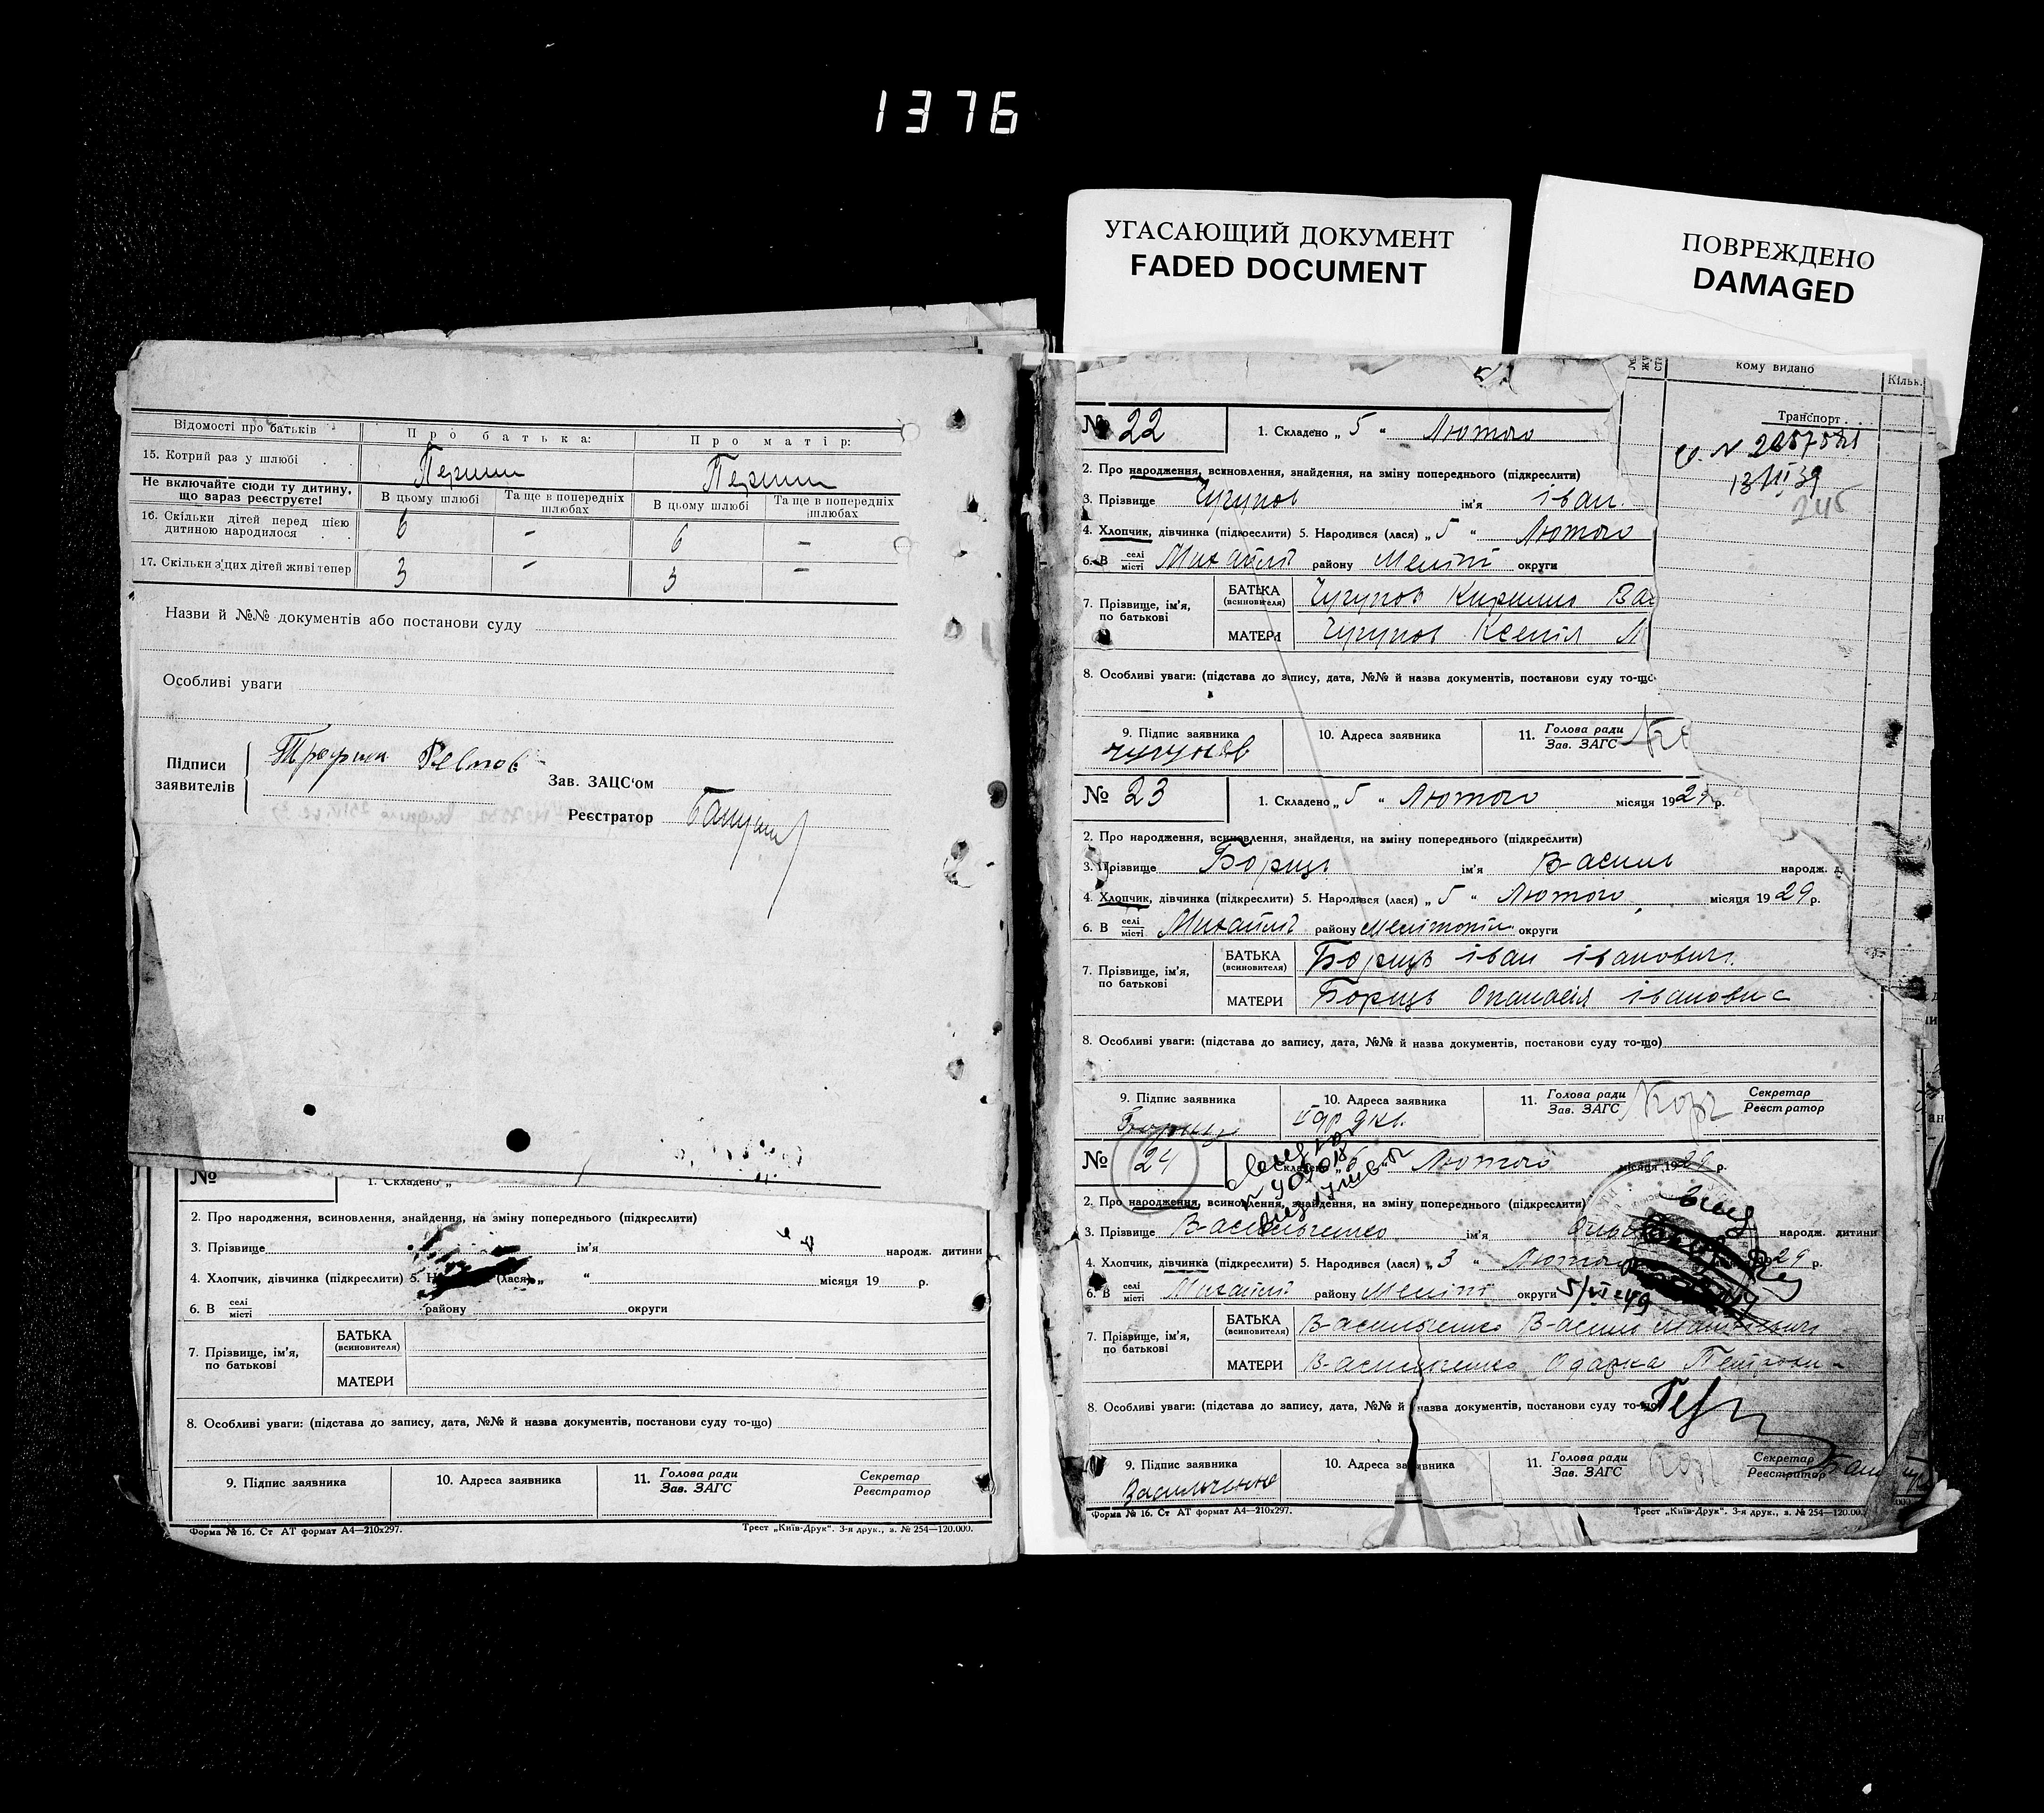 1376
УГАСАЮЩИЙ ДОКУМЕНТ
FADED DOCUMENT
ПОВРЕЖДЕНО
DAMAGED
Відомості про батьків
Про батька:
Про матір:
15. Котрий раз у шлюбі
Перший
Перший
Не включайте сюди ту дитину, що зараз реєструєте!
В цьому шлюбі
Та ще в попередніх шлюбах
В цьому шлюбі
Та ще в попередніх шлюбах
16. Скільки дітей перед цією дитиною народилося
6 - 6 -
17. Скільки з'цих дітей живі тепер
3 - 3 -
Назви й №№ документів або постанови суду
Особливі уваги
Підписи заявителів
Трофим
Зав. ЗАЦС'ом
Реєстратор
№
1. Складено „
2. Про народження, всиновлення, знайдення, на зміну попереднього (підкреслити)
3. Прізвище ім'я народж. дитини
4. Хлопчик, дівчинка (підкреслити) 5. (лася) „ “ місяця 19 р.
6. В селі місті району округи
7. Прізвище, ім'я, по батькові
БАТЬКА (всиновителя)
МАТЕРИ
8. Особливі уваги: (підстава до запису, дата, №№ й назва документів, постанови суду то-що)
9. Підпис заявника
10. Адреса заявника
11. Голова ради Зав. ЗАГС
Секретар Реєстратор
Форма № 16. Ст АТ формат А4—210х297.
Трест „Київ-Друк“. 3-я друк., з. № 254—120.000.
кому видано
Кільк.
Транспорт
13/III 39
245
№ 22
1. Складено „ 5 “ Лютого
2. Про народження, всиновлення, знайдення, на зміну попереднього (підкреслити)
3. Прізвище Чугунов ім'я іван.
4. Хлопчик, дівчинка (підкреслити) 5. Народився (лася) „ 5 “ Лютого
6. В селі місті Михайлі району Меліт округи
7. Прізвище, ім'я, по батькові
БАТЬКА (всиновителя) Чугунов Кирило Ва
МАТЕРИ Чугунов Ксенія
8. Особливі уваги: (підстава до запису, дата, №№ й назва документів, постанови суду то-що
9. Підпис заявника
Чугунов
10. Адреса заявника
11. Голова ради Зав. ЗАГС
№ 23
1. Складено „ 5 “ Лютого місяця 1929 р.
2. Про народження, всиновлення, знайдення, на зміну попереднього (підкреслити)
3. Прізвище Борщь ім'я Василь народж. д.
4. Хлопчик, дівчинка (підкреслити) 5. Народився (лася) „ 5 “ Лютого місяця 1929 р.
6. В селі місті Михайлі району Мелітопіль округи
7. Прізвище, ім'я, по батькові
БАТЬКА (всиновителя) Борщь іван іванович
МАТЕРИ Борщь Опанасія івановис
8. Особливі уваги: (підстава до запису, дата, №№ й назва документів, постанови суду то-що)
9. Підпис заявника
Борщь
10. Адреса заявника
11. Голова ради Зав. ЗАГС
Секретар Реєстратор
№ 24
5 “ Лютого місяця 1929 р.
2. Про народження, всиновлення, знайдення, на зміну попереднього (підкреслити)
3. Прізвище Васильченко ім'я народж. дитини
4. Хлопчик, дівчинка (підкреслити) 5. Народився (лася) „ 3 “ Лютого 29 р.
6. В селі місті Михайлі району Меліт округи
5/VI 49
7. Прізвище, ім'я, по батькові
БАТЬКА (всиновителя) Васильченко Василь
МАТЕРИ Васильченко Одарка Петрови
8. Особливі уваги: (підстава до запису, дата, №№ й назва документів, постанови суду то-що)
9. Підпис заявника
Васильченко
10. Адреса заявника
11. Голова ради Зав. ЗАГС
Секретар Реєстратор
Форма № 16. Ст АТ формат А4—210х297.
Трест „Київ-Друк“. 3-я друк., з. № 254—120.000.